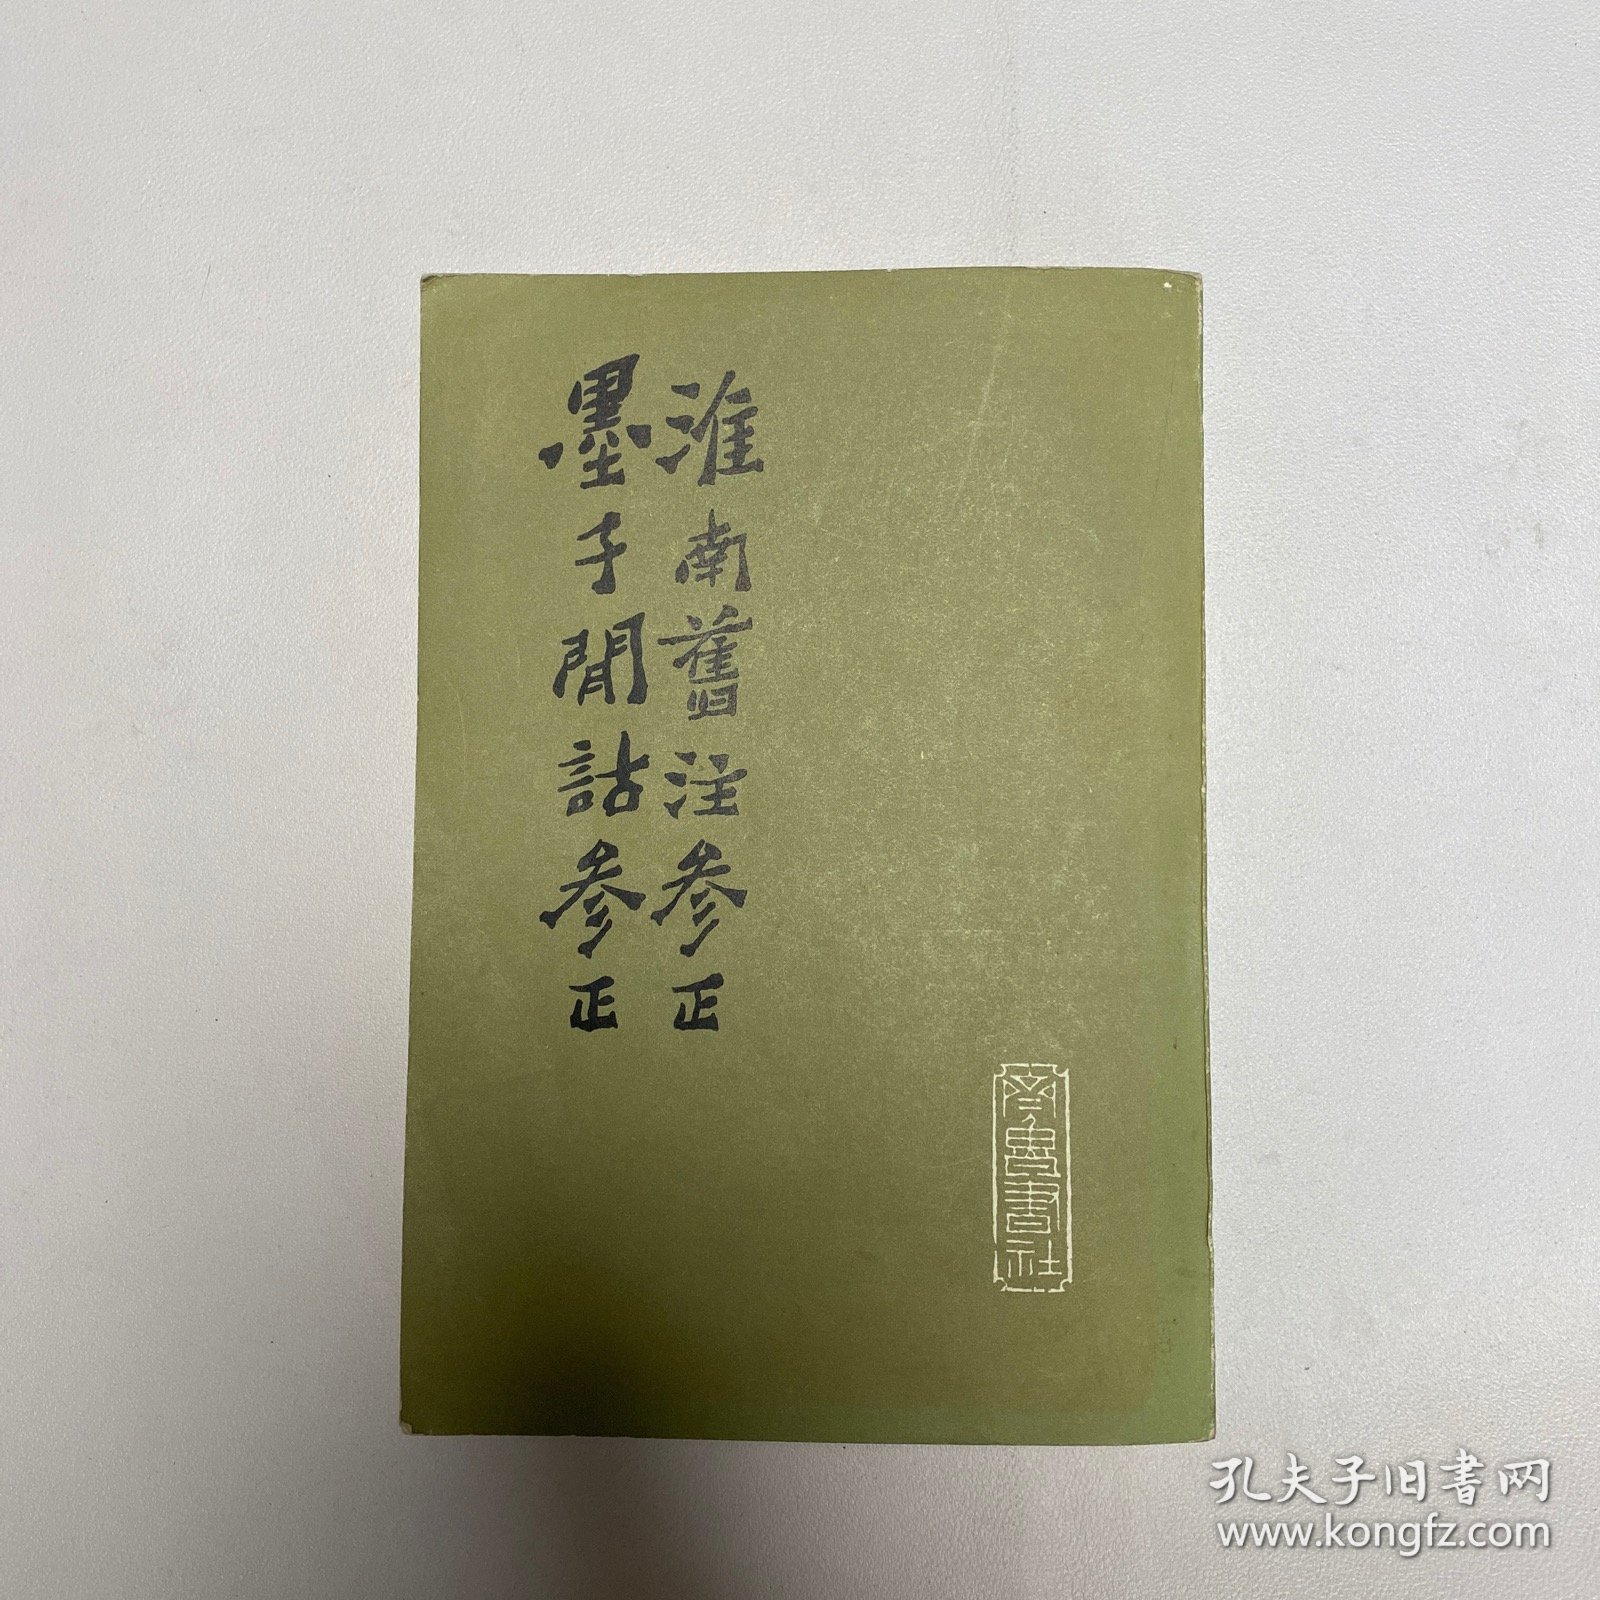 淮南舊注参正
墨子閒詁参正
齊魯書社
孔夫子旧书网
www.kongfz.com